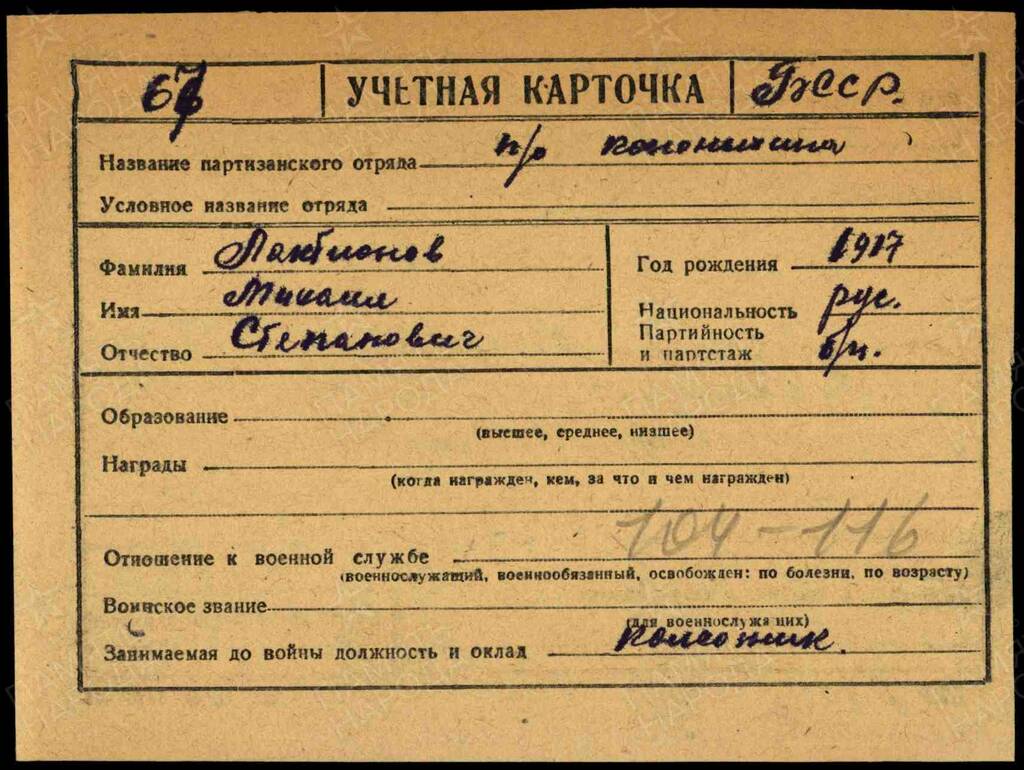 67 УЧЕТНАЯ КАРТОЧКА БССР.
Название партизанского отряда п/о
Условное название отряда
Фамилия Лактионов
Год рождения 1917
Имя Михаил
Национальность рус.
Отчество Степанович
Партийность
и партстаж б/п.
Образование
(высшее, среднее, низшее)
Награды
(когда награжден, кем, за что и чем награжден)
104-116
Отношение к военной службе
(военнослужащий, военнообязанный, освобожден: по болезни, по возрасту)
Воинское звание
(для военнослужащих)
Занимаемая до войны должность и оклад колхозник.